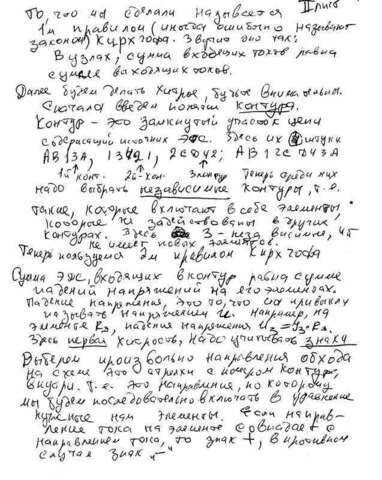 II лист
То, что мы сделали называется
1м правилом (иногда ошибочно называют
законом) Кирхгофа. Звучит оно так:
В узлах, сумма входящих токов равна
сумме выходящих токов.
Далее будем делать хитрые, будьте внимательны.
Сначала введем понятие контура.
Контур - это замкнутый участок цепи
содержащий источник ЭДС. Здесь их штуки
1й конт. 2й конт. Теперь среди них
надо выбрать независимые контуры, т.е.
такие, которые включают в себя элементы,
которые не задействованы в других
контурах. Здесь 3 - независимые, 4й
не имеет новых элементов.
Теперь пользуемся 2м правилом Кирхгофа
Сумма ЭДС, входящих в контур равна сумме
падений напряжений на его элементах.
Падение напряжения, это то, что мы привыкли
называть напряжением U. Например, на
элементе R3, падения напряжения U3=I3·R3.
Здесь первая хитрость, надо учитывать знаки
Выберем произвольно направления обхода
на схеме это стрелки с номером контура,
внутри. Т.е. это направления, по которому
мы будем последовательно включать в уравнение
нам элементы. Если направ-
ление тока на элементе совпадает с
направлением тока, то знак +, в противном
случае знак "-"